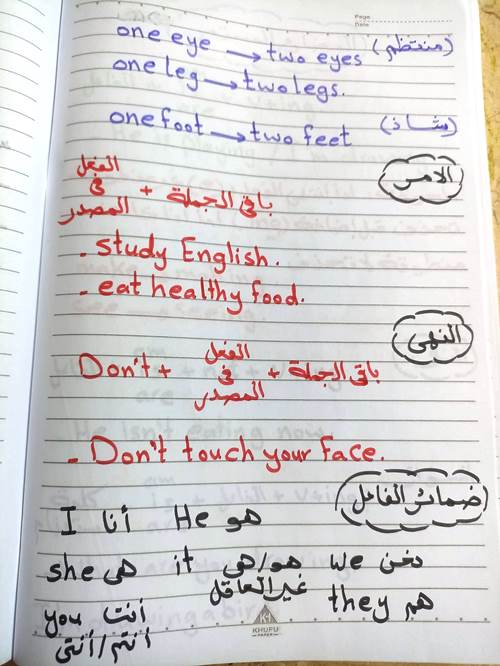 Page
Date
one eye → two eyes (منتظم)
one leg → two legs.
one foot → two feet (شاذ)
الامر
الفعل في المصدر + باقى الجملة
- study English.
- eat healthy food.
النهى
Don't + الفعل في المصدر + باقى الجملة
- Don't touch your face.
ضمائر الفاعل
I أنا He هو
she هى it هو/هى غير العاقل we نحن
you أنت أنتم/أنتى they هم
KHUFU
PAPER